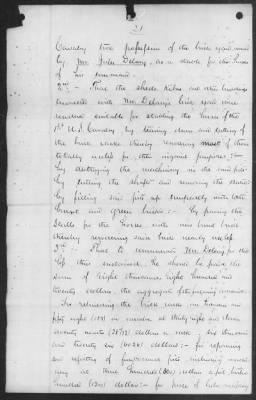 21
Cavalry took possession of the brick yard owned
by Mr. Jules Delany, as a shade for the horses
of his command.
2nd - That the sheds, kilns and other buildings
connected with Mr. Delany's brick yard were
rendered suitable for stabling the horses of the
1st U.S. Cavalry by tearing down and cutting of
the brick racks thereby rendering most of them
totally unfit for their original purposes; -
by destroying the machinery in the mud pits
by cutting the shafts and removing the
by filling said pits up completely with both
burnt and green bricks: - By paving the
stalls for the horses with new burnt bricks
thereby rendering said brick nearly useless
3rd - That to remunerate Mr. Delany for the
loss thus sustained, he should be paid the
sum of Eight thousand, eight hundred and
twenty dollars, the aggregate of the following amounts
In rebuilding the brick racks,
eight (58) in number at thirty eight and
ninety dollars a rack, six thousand
and twenty six (6026) dollars: - for repairing
and refitting of four mud pits, including
at three hundred (300) dollars a pit, twelve
hundred (1200) dollars: - for